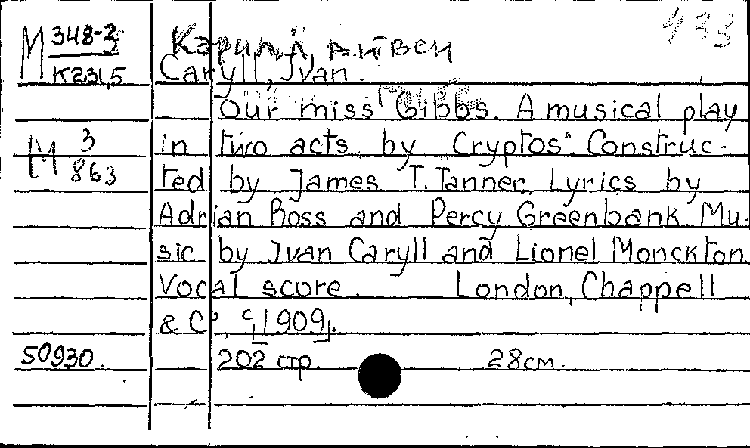 М 348-2 Карилл, Айвен 433
К231,5 Caryll, Ivan.
Our miss Gibbs. A musical play
М 3 in two acts by "Cryptos" Construc-
863 ted by James T. Tanner. Lyrics by
Adrian Ross and Percy Greenbank. Mu-
sic by Ivan Caryll and Lionel Monckton.
Vocal score. London, Chappell
& C°, c[1909].
50930. 202 стр. 28см.